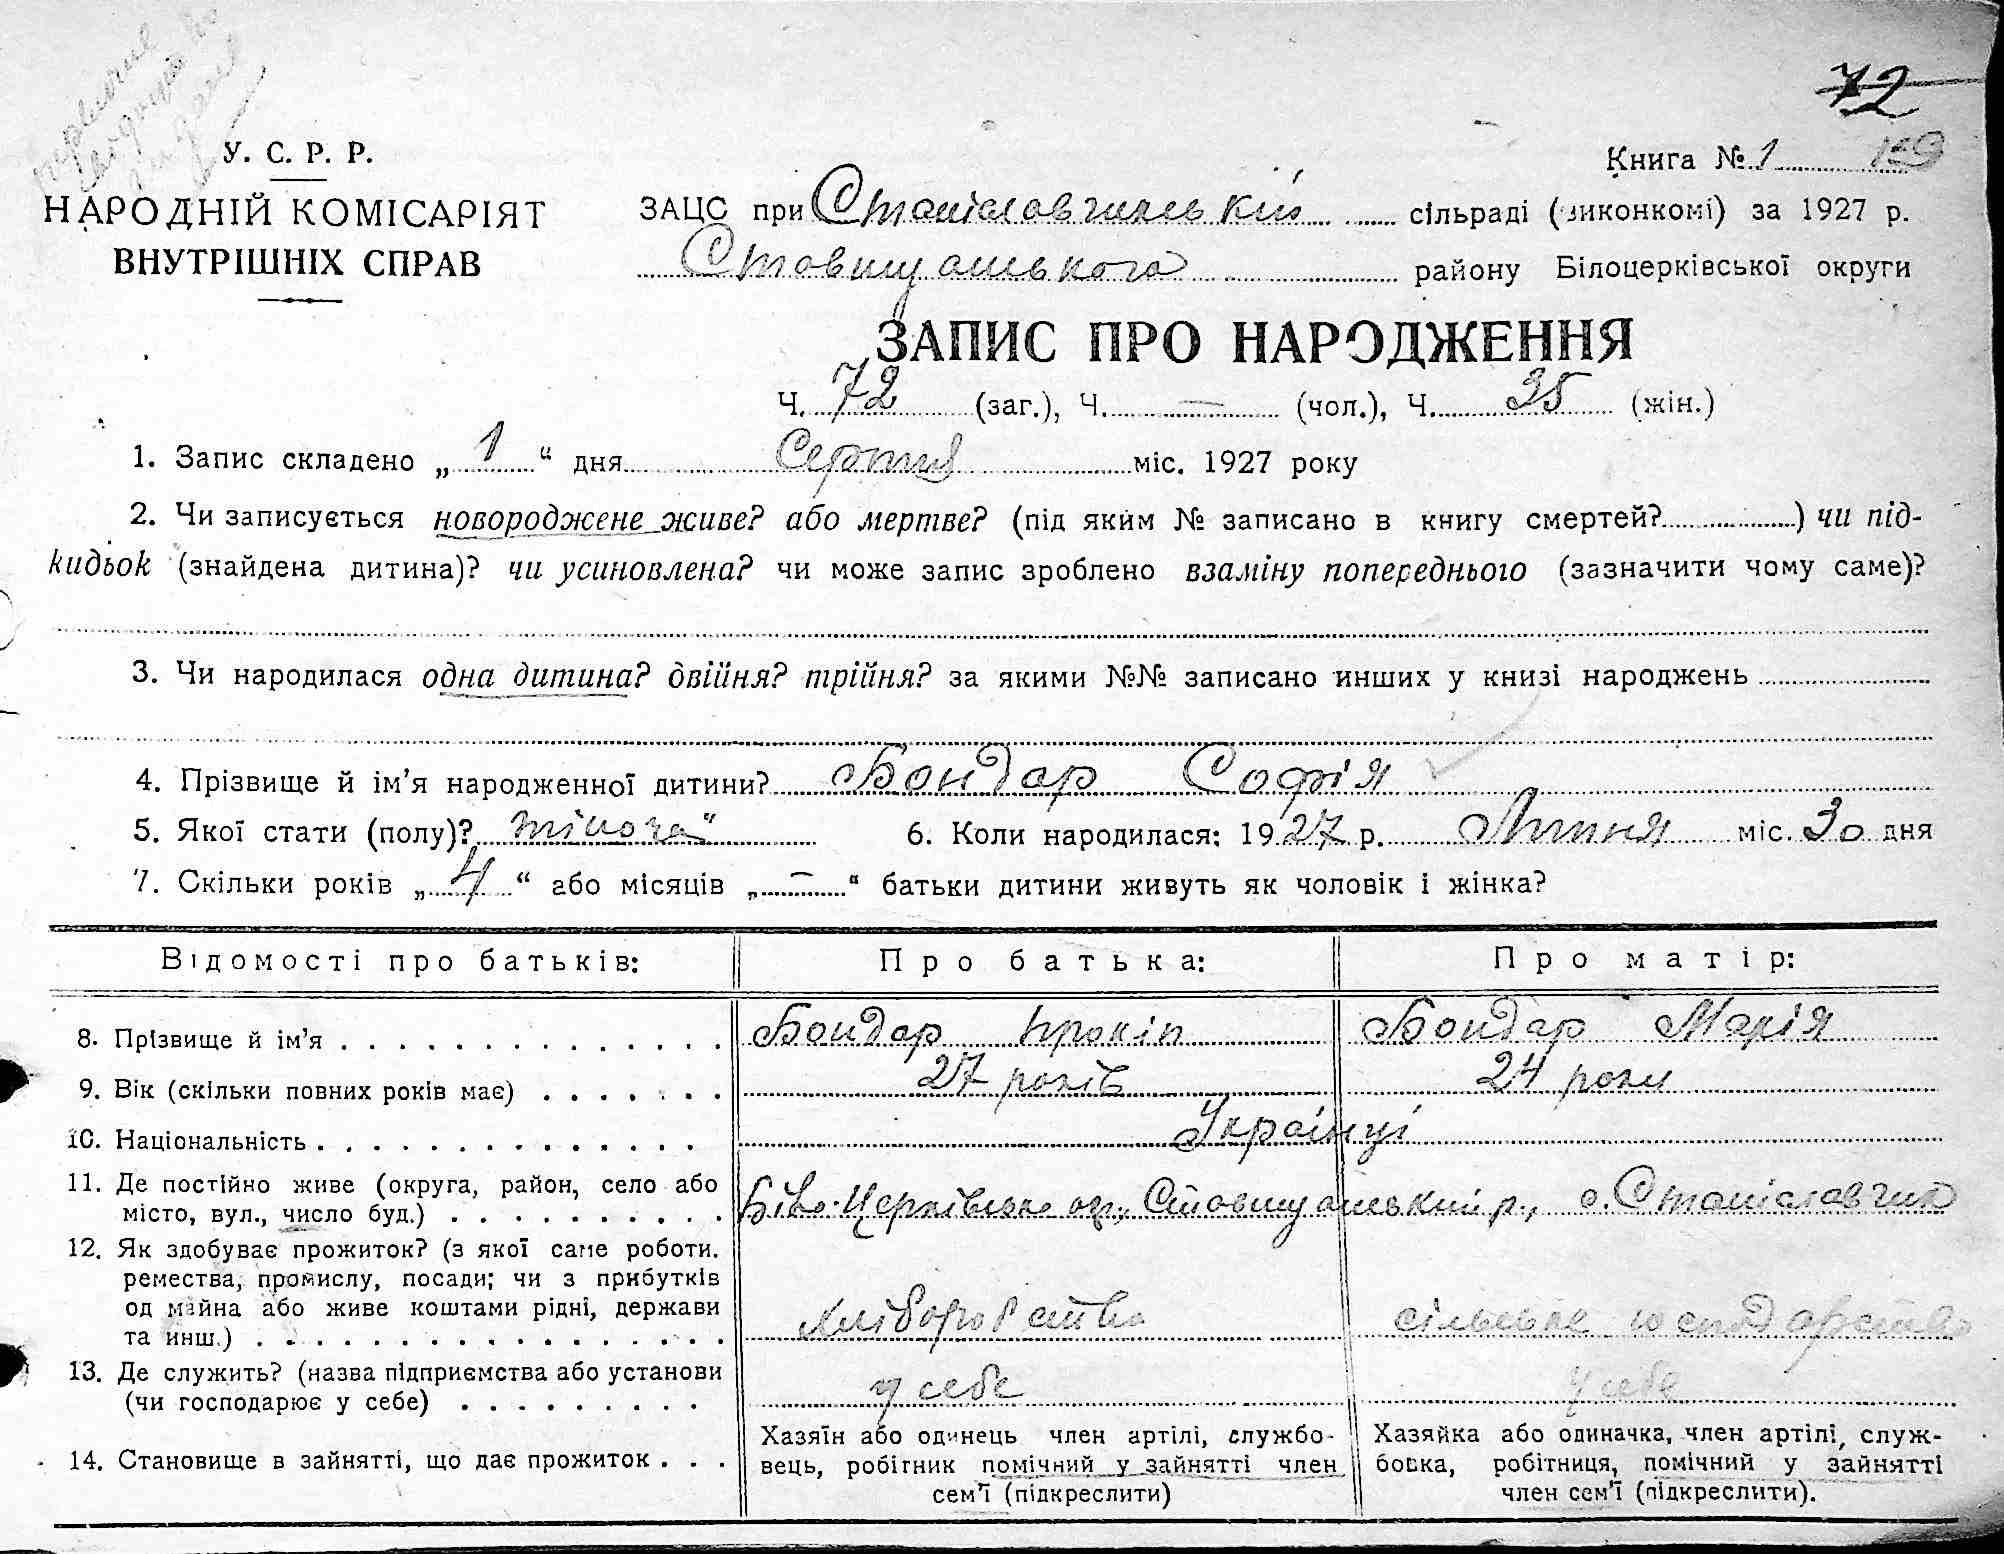 72
У. С. Р. Р.
Книга № 1
НАРОДНІЙ КОМІСАРІЯТ
ВНУТРІШНІХ СПРАВ
ЗАЦС при Станіславчинській сільраді (виконкомі) за 1927 р.
Ставищанського району Білоцерківської округи
ЗАПИС ПРО НАРОДЖЕННЯ
Ч. 72 (заг.), Ч. — (чол.), Ч. 35 (жін.)
1. Запис складено „ 1 “ дня Серпня міс. 1927 року
2. Чи записується новороджене живе? або мертве? (під яким № записано в книгу смертей? ) чи під-
кидьок (знайдена дитина)? чи усиновлена? чи може запис зроблено взаміну попереднього (зазначити чому саме)?
3. Чи народилася одна дитина? двійня? трійня? за якими №№ записано инших у книзі народжень
4. Прізвище й ім’я народженної дитини? Бондар Софія
5. Якої стати (полу)? жіноча" 6. Коли народилася: 1927 р. Липня міс. 30 дня
7. Скільки років „ 4 “ або місяців „ — “ батьки дитини живуть як чоловік і жінка?
Відомості про батьків: Про батька: Про матір:
8. Прізвище й ім’я Бондар Прокіп Бондар Марія
9. Вік (скільки повних років має) 27 років 24 роки
10. Національність Українці
11. Де постійно живе (округа, район, село або
місто, вул., число буд.) Біло-Церківська окр., Ставищанський р., с. Станіславчик
12. Як здобуває прожиток? (з якої саме роботи.
ремества, промислу, посади; чи з прибутків
од майна або живе коштами рідні, держави
та инш.) хліборобство сільське господарство
13. Де служить? (назва підприємства або установи
(чи господарює у себе) у себе у себе
14. Становище в зайнятті, що дає прожиток
Хазяїн або одинець член артілі, службо-
вець, робітник помічний у зайнятті член
сем’ї (підкреслити)
Хазяйка або одиначка, член артілі, служ-
бовка, робітниця, помічний у зайнятті
член сем’ї (підкреслити).